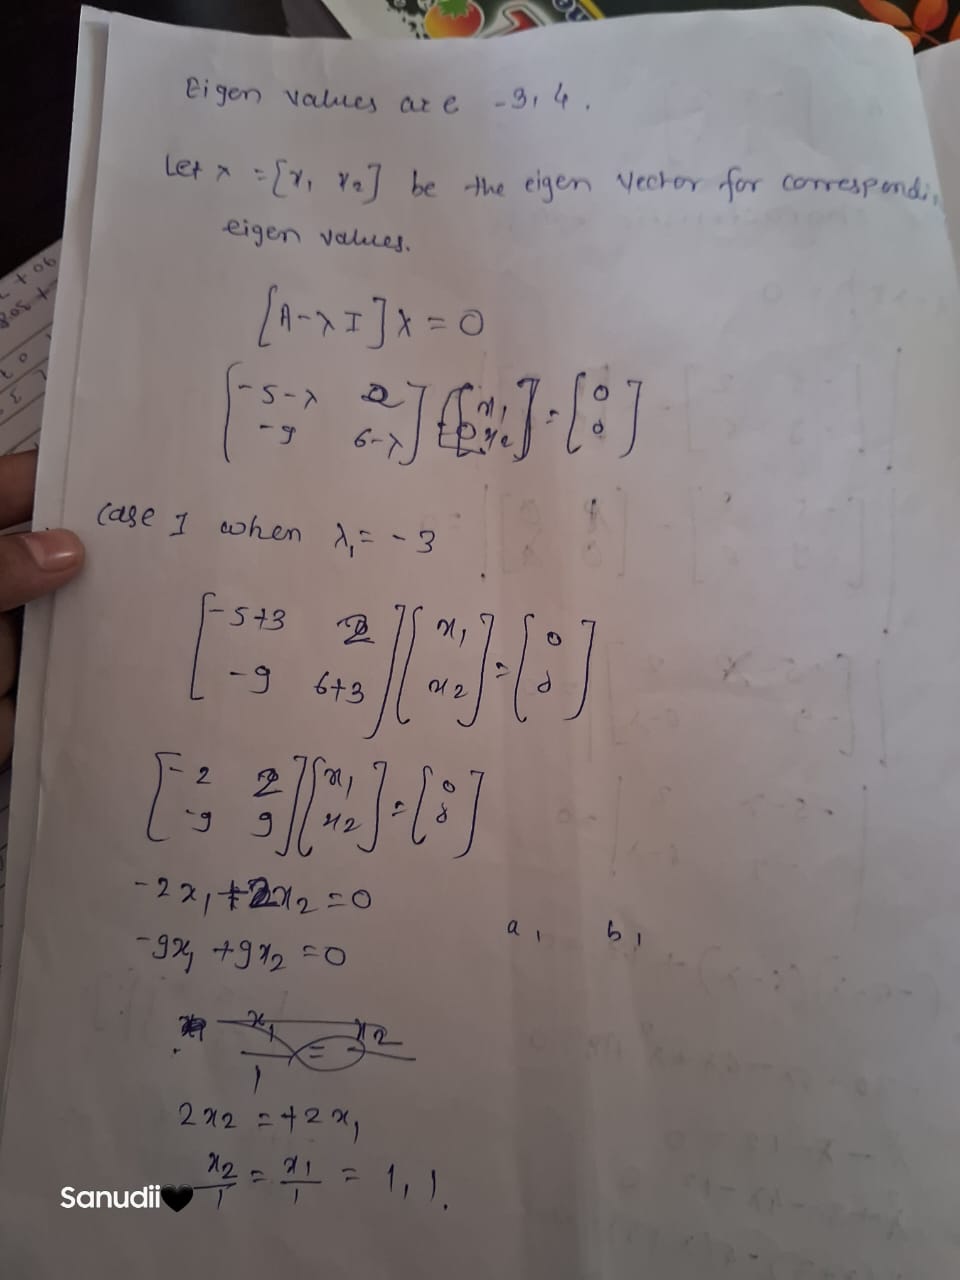 Eigen values are -3, 4.
Let x = [x₁ x₂] be the eigen vector for correspondi
eigen values.
[A-λI] X = 0
[-5-λ 2] [x₁] = [0]
[-9 6-λ] [x₂] [0]
case I when λ₁ = -3
[-5+3 2] [x₁] = [0]
[-9 6+3] [x₂] [0]
[-2 2] [x₁] = [0]
[-9 9] [x₂] [0]
-2x₁ + 2x₂ = 0
-9x₁ + 9x₂ = 0
a₁ b₁
x₁ = x₂
1
2x₂ = +2x₁
x₂/1 = x₁/1 = 1, 1.
Sanudii🖤